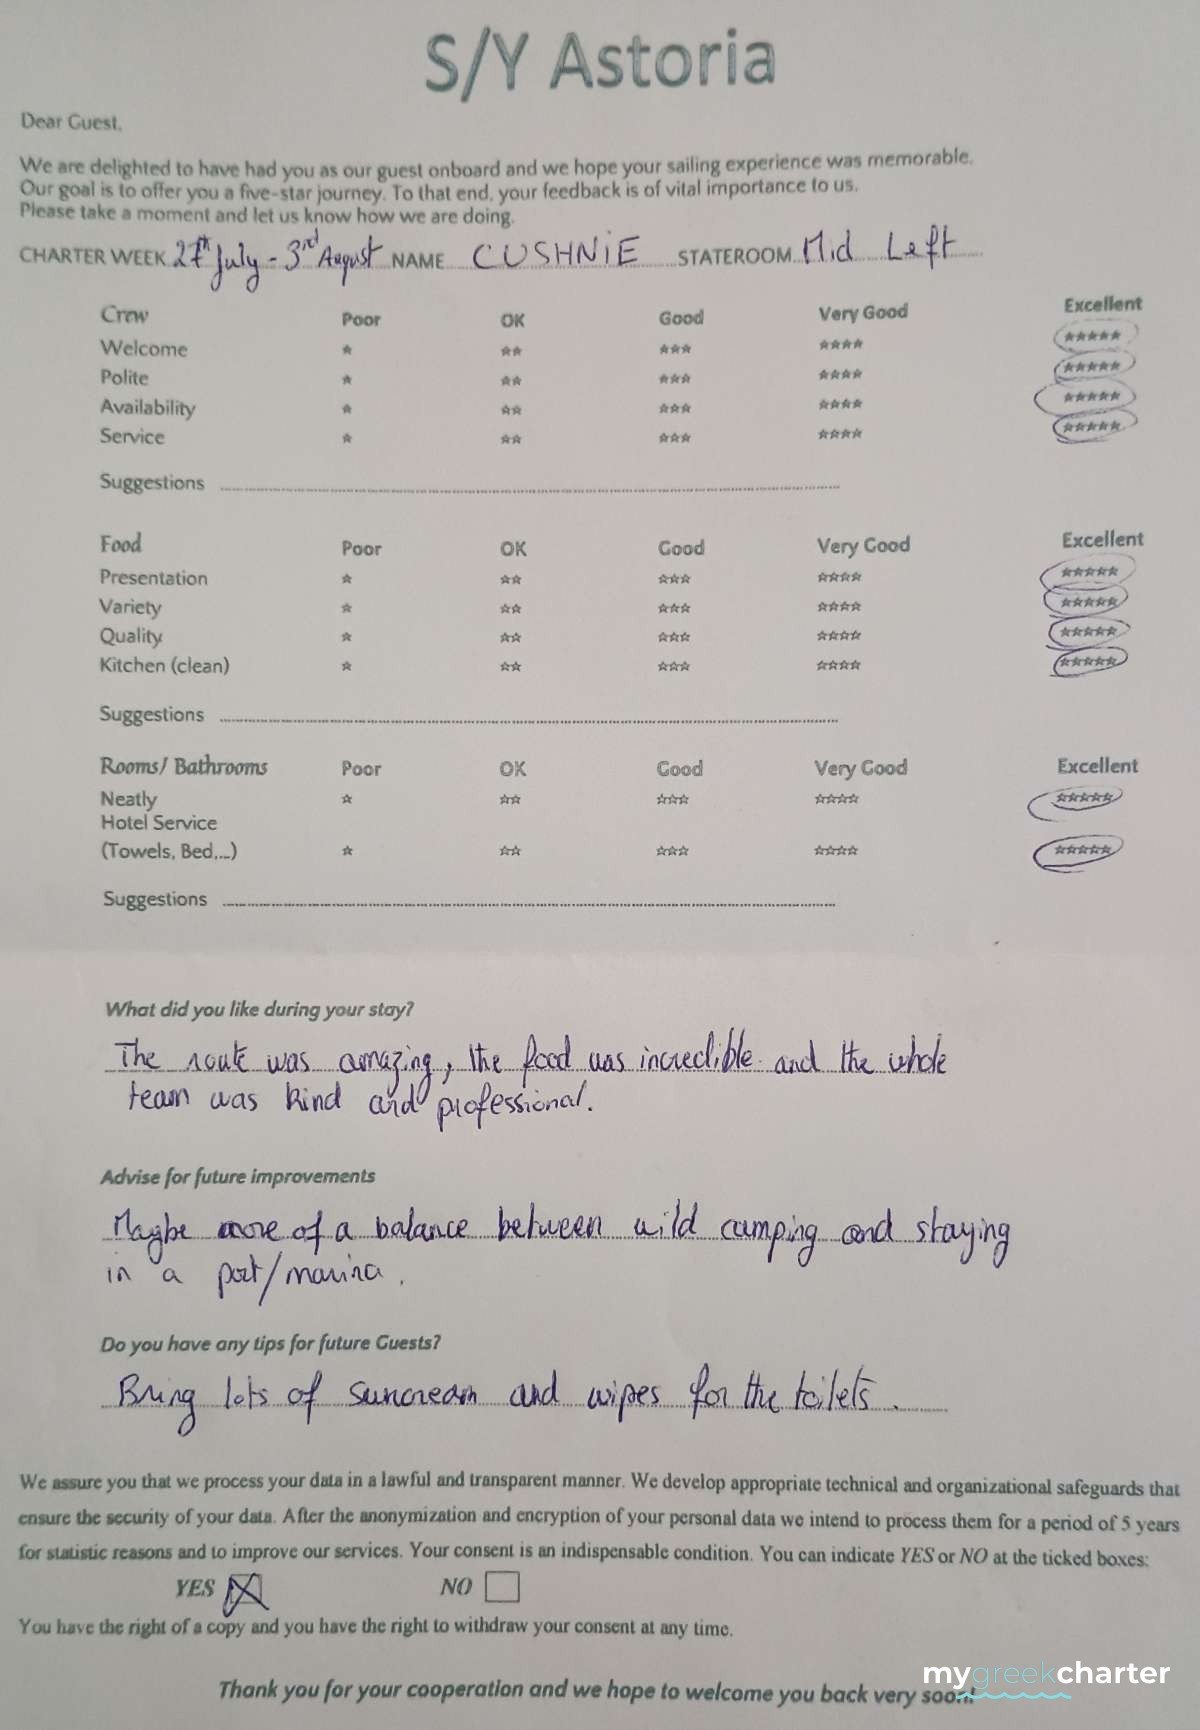 S/Y Astoria
Dear Guest,
We are delighted to have had you as our guest onboard and we hope your sailing experience was memorable.
Our goal is to offer you a five-star journey. To that end, your feedback is of vital importance to us.
Please take a moment and let us know how we are doing.
CHARTER WEEK 27th July - 3rd August NAME CUSHNIE STATEROOM Mid Left
Crew Poor OK Good Very Good Excellent
Welcome ☆ ☆☆ ☆☆☆ ☆☆☆☆ ☆☆☆☆☆
Polite ☆ ☆☆ ☆☆☆ ☆☆☆☆ ☆☆☆☆☆
Availability ☆ ☆☆ ☆☆☆ ☆☆☆☆ ☆☆☆☆☆
Service ☆ ☆☆ ☆☆☆ ☆☆☆☆ ☆☆☆☆☆
Suggestions
Food Poor OK Good Very Good Excellent
Presentation ☆ ☆☆ ☆☆☆ ☆☆☆☆ ☆☆☆☆☆
Variety ☆ ☆☆ ☆☆☆ ☆☆☆☆ ☆☆☆☆☆
Quality ☆ ☆☆ ☆☆☆ ☆☆☆☆ ☆☆☆☆☆
Kitchen (clean) ☆ ☆☆ ☆☆☆ ☆☆☆☆ ☆☆☆☆☆
Suggestions
Rooms/ Bathrooms Poor OK Good Very Good Excellent
Neatly ☆ ☆☆ ☆☆☆ ☆☆☆☆ ☆☆☆☆☆
Hotel Service
(Towels, Bed,...) ☆ ☆☆ ☆☆☆ ☆☆☆☆ ☆☆☆☆☆
Suggestions
What did you like during your stay?
The route was amazing, the food was incredible and the whole
team was kind and professional.
Advise for future improvements
Maybe more of a balance between wild camping and staying
in a port/marina.
Do you have any tips for future Guests?
Bring lots of suncream and wipes for the toilets.
We assure you that we process your data in a lawful and transparent manner. We develop appropriate technical and organizational safeguards that
ensure the security of your data. After the anonymization and encryption of your personal data we intend to process them for a period of 5 years
for statistic reasons and to improve our services. Your consent is an indispensable condition. You can indicate YES or NO at the ticked boxes:
YES NO
You have the right of a copy and you have the right to withdraw your consent at any time.
mygreekcharter
Thank you for your cooperation and we hope to welcome you back very soon!